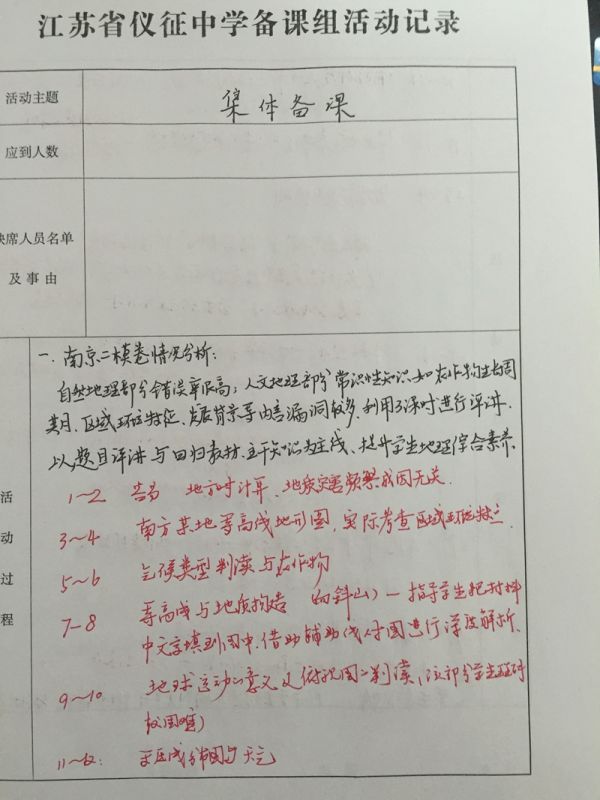 江苏省仪征中学备课组活动记录
活动主题
集体备课
应到人数
缺席人员名单
及事由
活动过程
一.南京二模卷情况分析:
自然地理部分错误率很高;人文地理部分常识性知识如农作物生长周
期、区域环境特征、发展背景等内容漏洞较多,利用3课时进行评讲.
以题目评讲与回归教材、主干知识为主线、提升学生地理综合素养.
1~2 地方时计算、地质灾害频繁成因无关.
3~4 南方某地等高线地形图,实际考查区域环境特点.
5~6 气候类型判读与农作物
7-8 等高线与地质构造 向斜山)—指导学生把材料
中文字填到图中.借助辅助线对图进行深度解析.
9~10 地球运动的意义及俯视图的判读(这部分学生
较困难)
11~12: 线分布图与天气